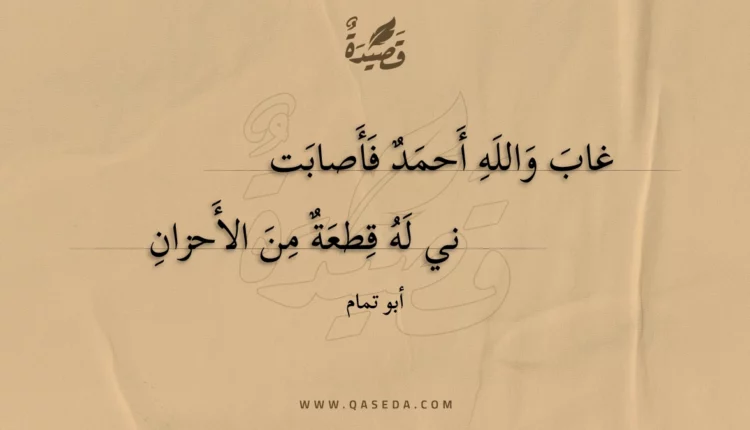 قَصِيْدَةٌ
غابَ وَاللَهِ أَحمَدٌ فَأَصابَت
ني لَهُ قِطعَةٌ مِنَ الأَحزانِ
أبو تمام
WWW.QASEDA.COM